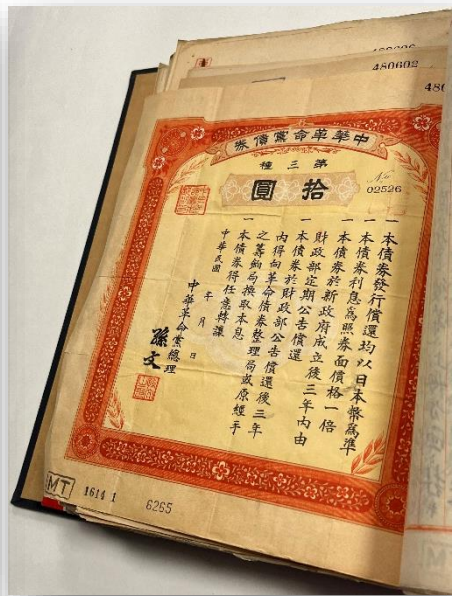 480602
480
中華革命黨債券
第三種
拾圓
No 02526
一本債券發行償還均以日本幣爲準
一本債券利息爲照券面價格一倍
一本債券於新政府成立後三年內由
財政部定期公告償還
一本債券於財政部公告償還後三年
內得向革命債券整理局或原經手
之籌餉局換取本息
一本債券得任意轉讓
中華民國 年 月 日
中華革命黨總理
孫文
MT
1614 1
6265